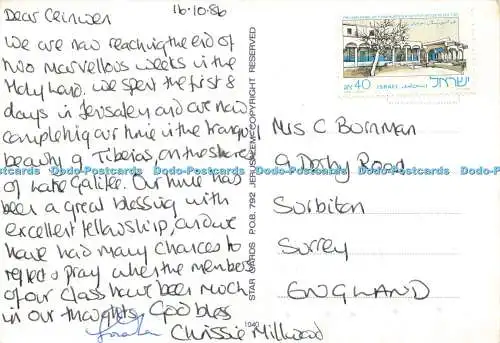 Dear Ceinwen
16.10.86
We are now reaching the end of
two marvellous weeks in the
Holy Land. We spent the first 8
days in Jerusalem and are now
completing our time in the tranquil
beauty of Tiberias, on the shore
of Lake Galilee. Our time has
been a great blessing with
excellent fellowship, and we
have had many chances to
reflect & pray when the members
of our class have been much
in our thoughts. God bless
Chrissie Millwood
STAR CARDS P.O.B. 7792 JERUSALEM-COPYRIGHT RESERVED
1040
40
ISRAEL
ישראל
Mrs C Bornman
9 Derby Road
Surbiton
Surrey
ENGLAND
Dodo-Postcards Dodo-Postcards Dodo-Postcards Dodo-Postcards Dodo-Postcards Dodo-Postcards